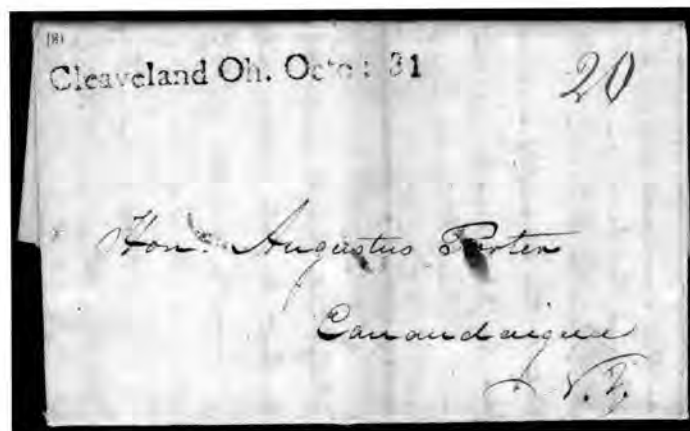 (8)
Cleaveland Oh. Octo: 31
20
Hon. Augustus Porter
Canandaigua
N.Y.